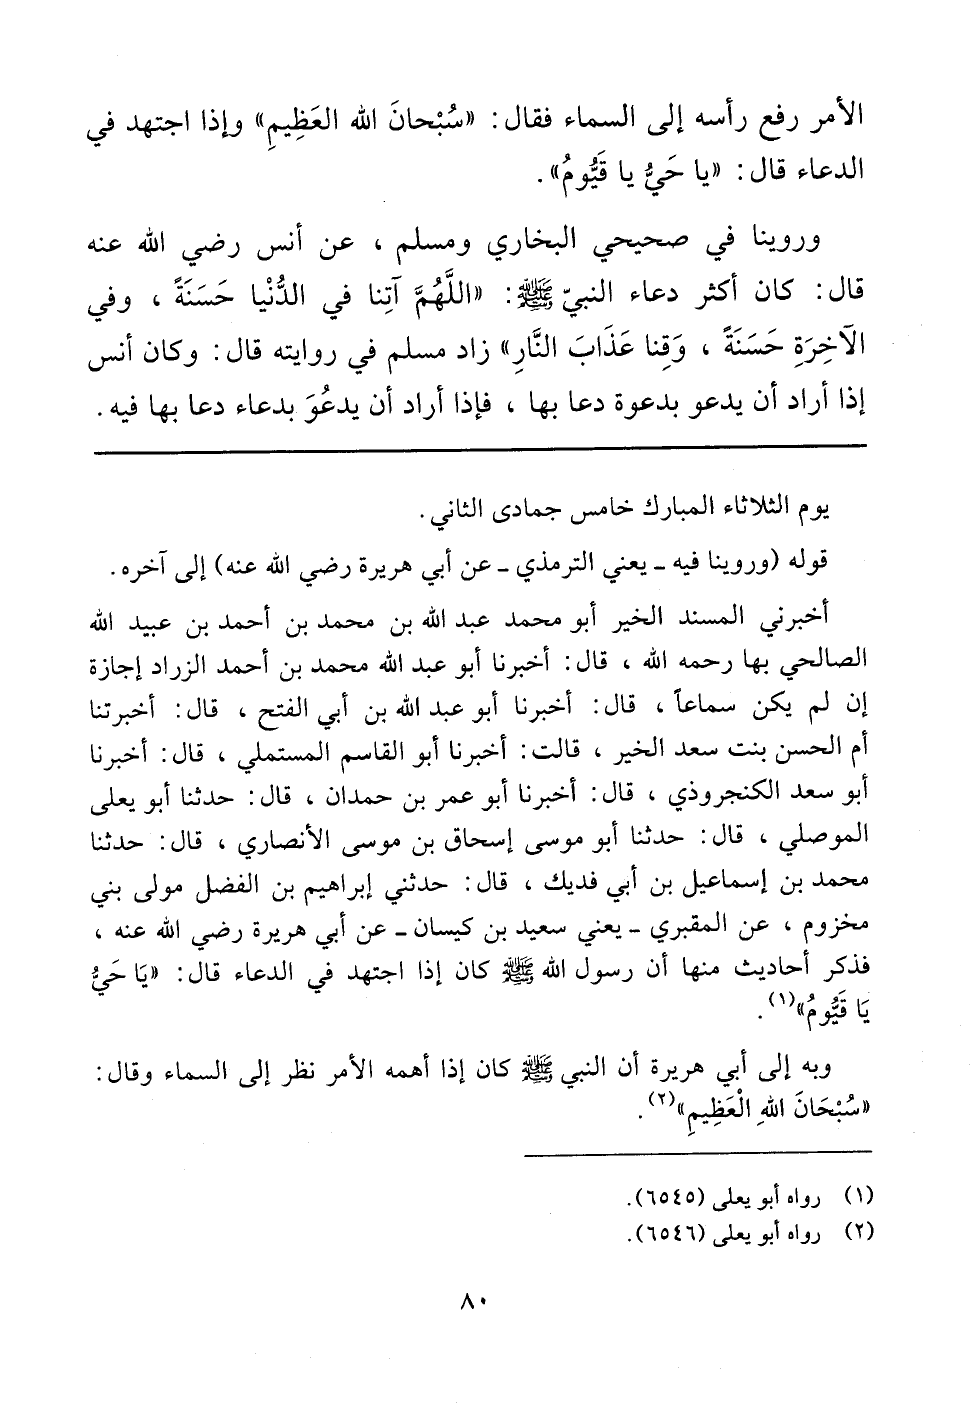 الأمر رفع رأسه إلى السماء فقال: «سُبْحانَ الله العَظِيمِ» وإذا اجتهد في
الدعاء قال: «يا حَيُّ يا قَيُّومُ».
وروينا في صحيحي البخاري ومسلم، عن أنس رضي الله عنه
قال: كان أكثر دعاء النبيّ ﷺ: «اللَّهُمَّ آتِنا في الدُّنْيا حَسَنَةً، وفي
الآخِرَةِ حَسَنَةً، وَقِنا عَذَابَ النَّارِ» زاد مسلم في روايته قال: وكان أنس
إذا أراد أن يدعو بدعوة دعا بها، فإذا أراد أن يدعُوَ بدعاء دعا بها فيه.
يوم الثلاثاء المبارك خامس جمادى الثاني.
قوله (وروينا فيه ـ يعني الترمذي ـ عن أبي هريرة رضي الله عنه) إلى آخره.
أخبرني المسند الخير أبو محمد عبد الله بن محمد بن أحمد بن عبيد الله
الصالحي بها رحمه الله، قال: أخبرنا أبو عبد الله محمد بن أحمد الزراد إجازة
إن لم يكن سماعاً، قال: أخبرنا أبو عبد الله بن أبي الفتح، قال: أخبرتنا
أم الحسن بنت سعد الخير، قالت: أخبرنا أبو القاسم المستملي، قال: أخبرنا
أبو سعد الكنجروذي، قال: أخبرنا أبو عمر بن حمدان، قال: حدثنا أبو يعلى
الموصلي، قال: حدثنا أبو موسى إسحاق بن موسى الأنصاري، قال: حدثنا
محمد بن إسماعيل بن أبي فديك، قال: حدثني إبراهيم بن الفضل مولى بني
مخزوم، عن المقبري ـ يعني سعيد بن كيسان ـ عن أبي هريرة رضي الله عنه،
فذكر أحاديث منها أن رسول الله ﷺ كان إذا اجتهد في الدعاء قال: «يَا حَيُّ
يَا قَيُّومُ»(١).
وبه إلى أبي هريرة أن النبي ﷺ كان إذا أهمه الأمر نظر إلى السماء وقال:
«سُبْحَانَ اللهِ الْعَظِيمِ»(٢).
(١) رواه أبو يعلى (٦٥٤٥).
(٢) رواه أبو يعلى (٦٥٤٦).
٨٠